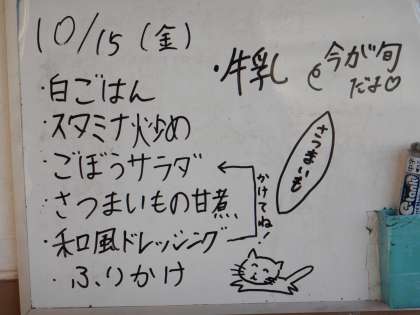 10/15 (金)
・白ごはん
・スタミナ炒め
・ごぼうサラダ
・さつまいもの甘煮
・和風ドレッシング
・ふりかけ
・牛乳
今が旬
だよ♡
さつまいも
かけてね!